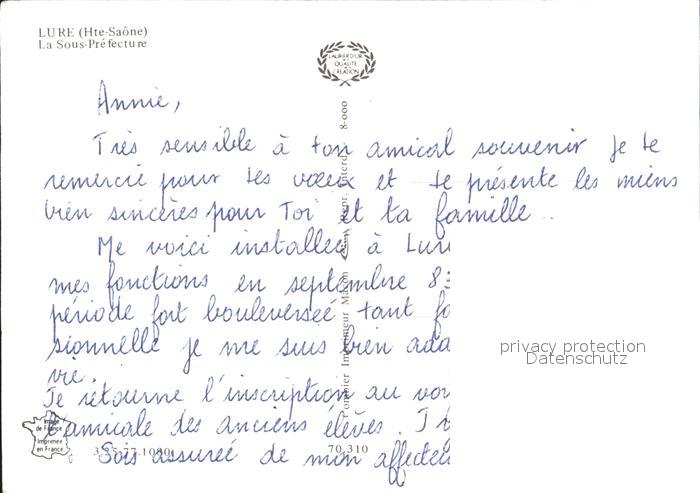 LURE (Hte-Saône)
La Sous-Préfecture
LAURIER D'OR
QUALITÉ
CRÉATION
Annie,
Très sensible à ton amical souvenir je te
remercie pour tes voeux et te présente les miens
bien sincères pour Toi et ta famille..
Me voici installée à Lure
mes fonctions en septembre 83
période fort bouleversée tant
sionnelle je me suis bien
vie.
Je retourne l'inscription au
l'amicale des anciens élèves.
Sois assurée de mon
Image
de France
Imprimée
en France
70.310
Combier Imprimeur Macon
8-000
privacy protection
Datenschutz